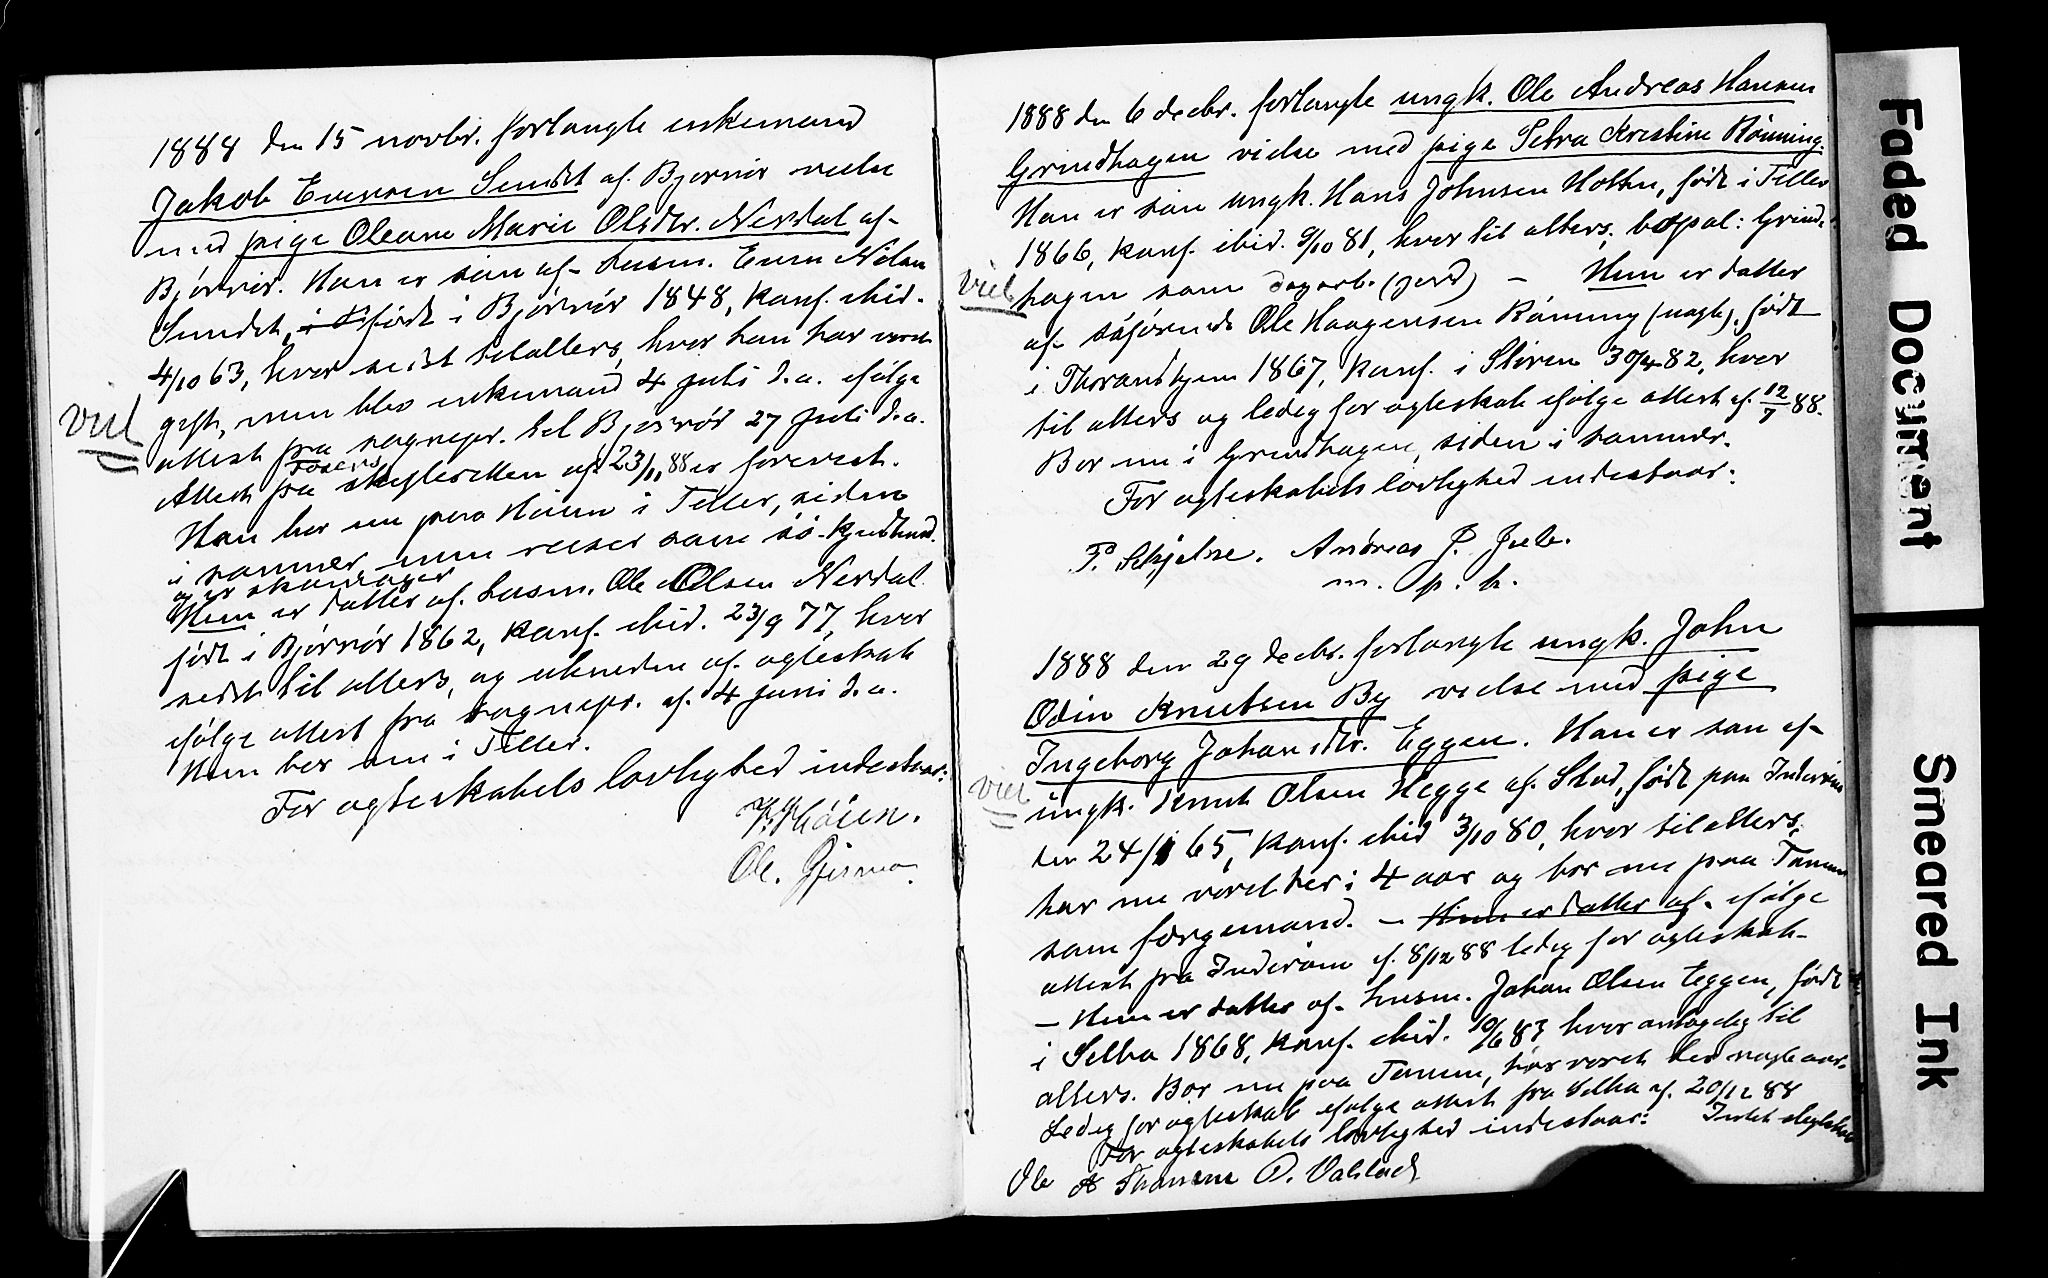 1888 den 15 novbr. forlangte enkemand
Jakob Enersen Sundet af Bjørnør vielse
med pige Oleane Marie Olsdtr. Nerdal af
Bjørnør. Han er søn af husm. Ener Nilsen
Sundet, født i Bjørnør 1848, konf. ibid.
4/10 63, hvor sidst tilalters, hvor han har været
gift, men blev enkemand 4 juli d.a. ifølge
viel
attest fra sognepr. til Bjørnør 27 juli d.a.
Attest fra Fosens skifteretten af 23/11 88 er forevist.
Han bor nu paa Høien i Tiller, siden
i sommer, men reiser som
og er skomager
Hun er datter af husm. Ole Olsen Nerdal
født i Bjørnør 1862, konf. ibid. 23/9 77, hvor
sidst til alters, og ubunden af ægteskab
ifølge attest fra sognepr. af 4 juni d.a.
Hun bor nu i Tiller.
For ægteskabets lovlighed indestaar:
Høien.
Ole Gjersmo.
1888 den 6 decbr. forlangte ungk. Ole Andreas Hansen
Grindhagen vielse med pige Petra Kristine Rönning.
Han er søn ungk. Hans Johnsen Holten, født i Tiller
1866, konf. ibid. 9/10 81, hvor til alters, bopæl: Grind-
viel
hagen som dagarb. (jord) – Hun er datter
af Ole Haagensen Röning (uægte), født
i Throndhjem 1867, konf. i Støren 30/4 82, hvor
til alters og ledig for ægteskab ifølge attest af 12/7 88.
Bor nu i Grindhagen, siden i sommer.
For ægteskabets lovlighed indestaar:
P. Skjelne. Andreas P.
m. p. h.
1888 den 29 decbr. forlangte ungk. John
Odin Knutsen By vielse med pige
Ingeborg Johansdtr. Eggen. Han er søn af
viel
ungk. Knut Olsen Hegge af Stod, født paa Inderøen
den 24/1 65, konf. ibid 3/10 80, hvor til alters,
har nu været her i 4 aar og bor nu paa Tanem
som færgemand. – Hun er datter af. ifølge
attest fra Inderøen af 8/12 88 ledig for ægteskab
– Hun er datter af husm. Johan Olsen Eggen, født
i Selbu 1868, konf. ibid. 10/6 83 hvor antagelig til
alters. Bor nu paa Tanem, har været her nogle aar.
Ledig for ægteskab ifølge attest fra Selbu af 20/12 88
For ægteskabets lovlighed indestaar: Intet slegtskab
Ole Thanem O. Valslad
Faded Document
Smeared Ink